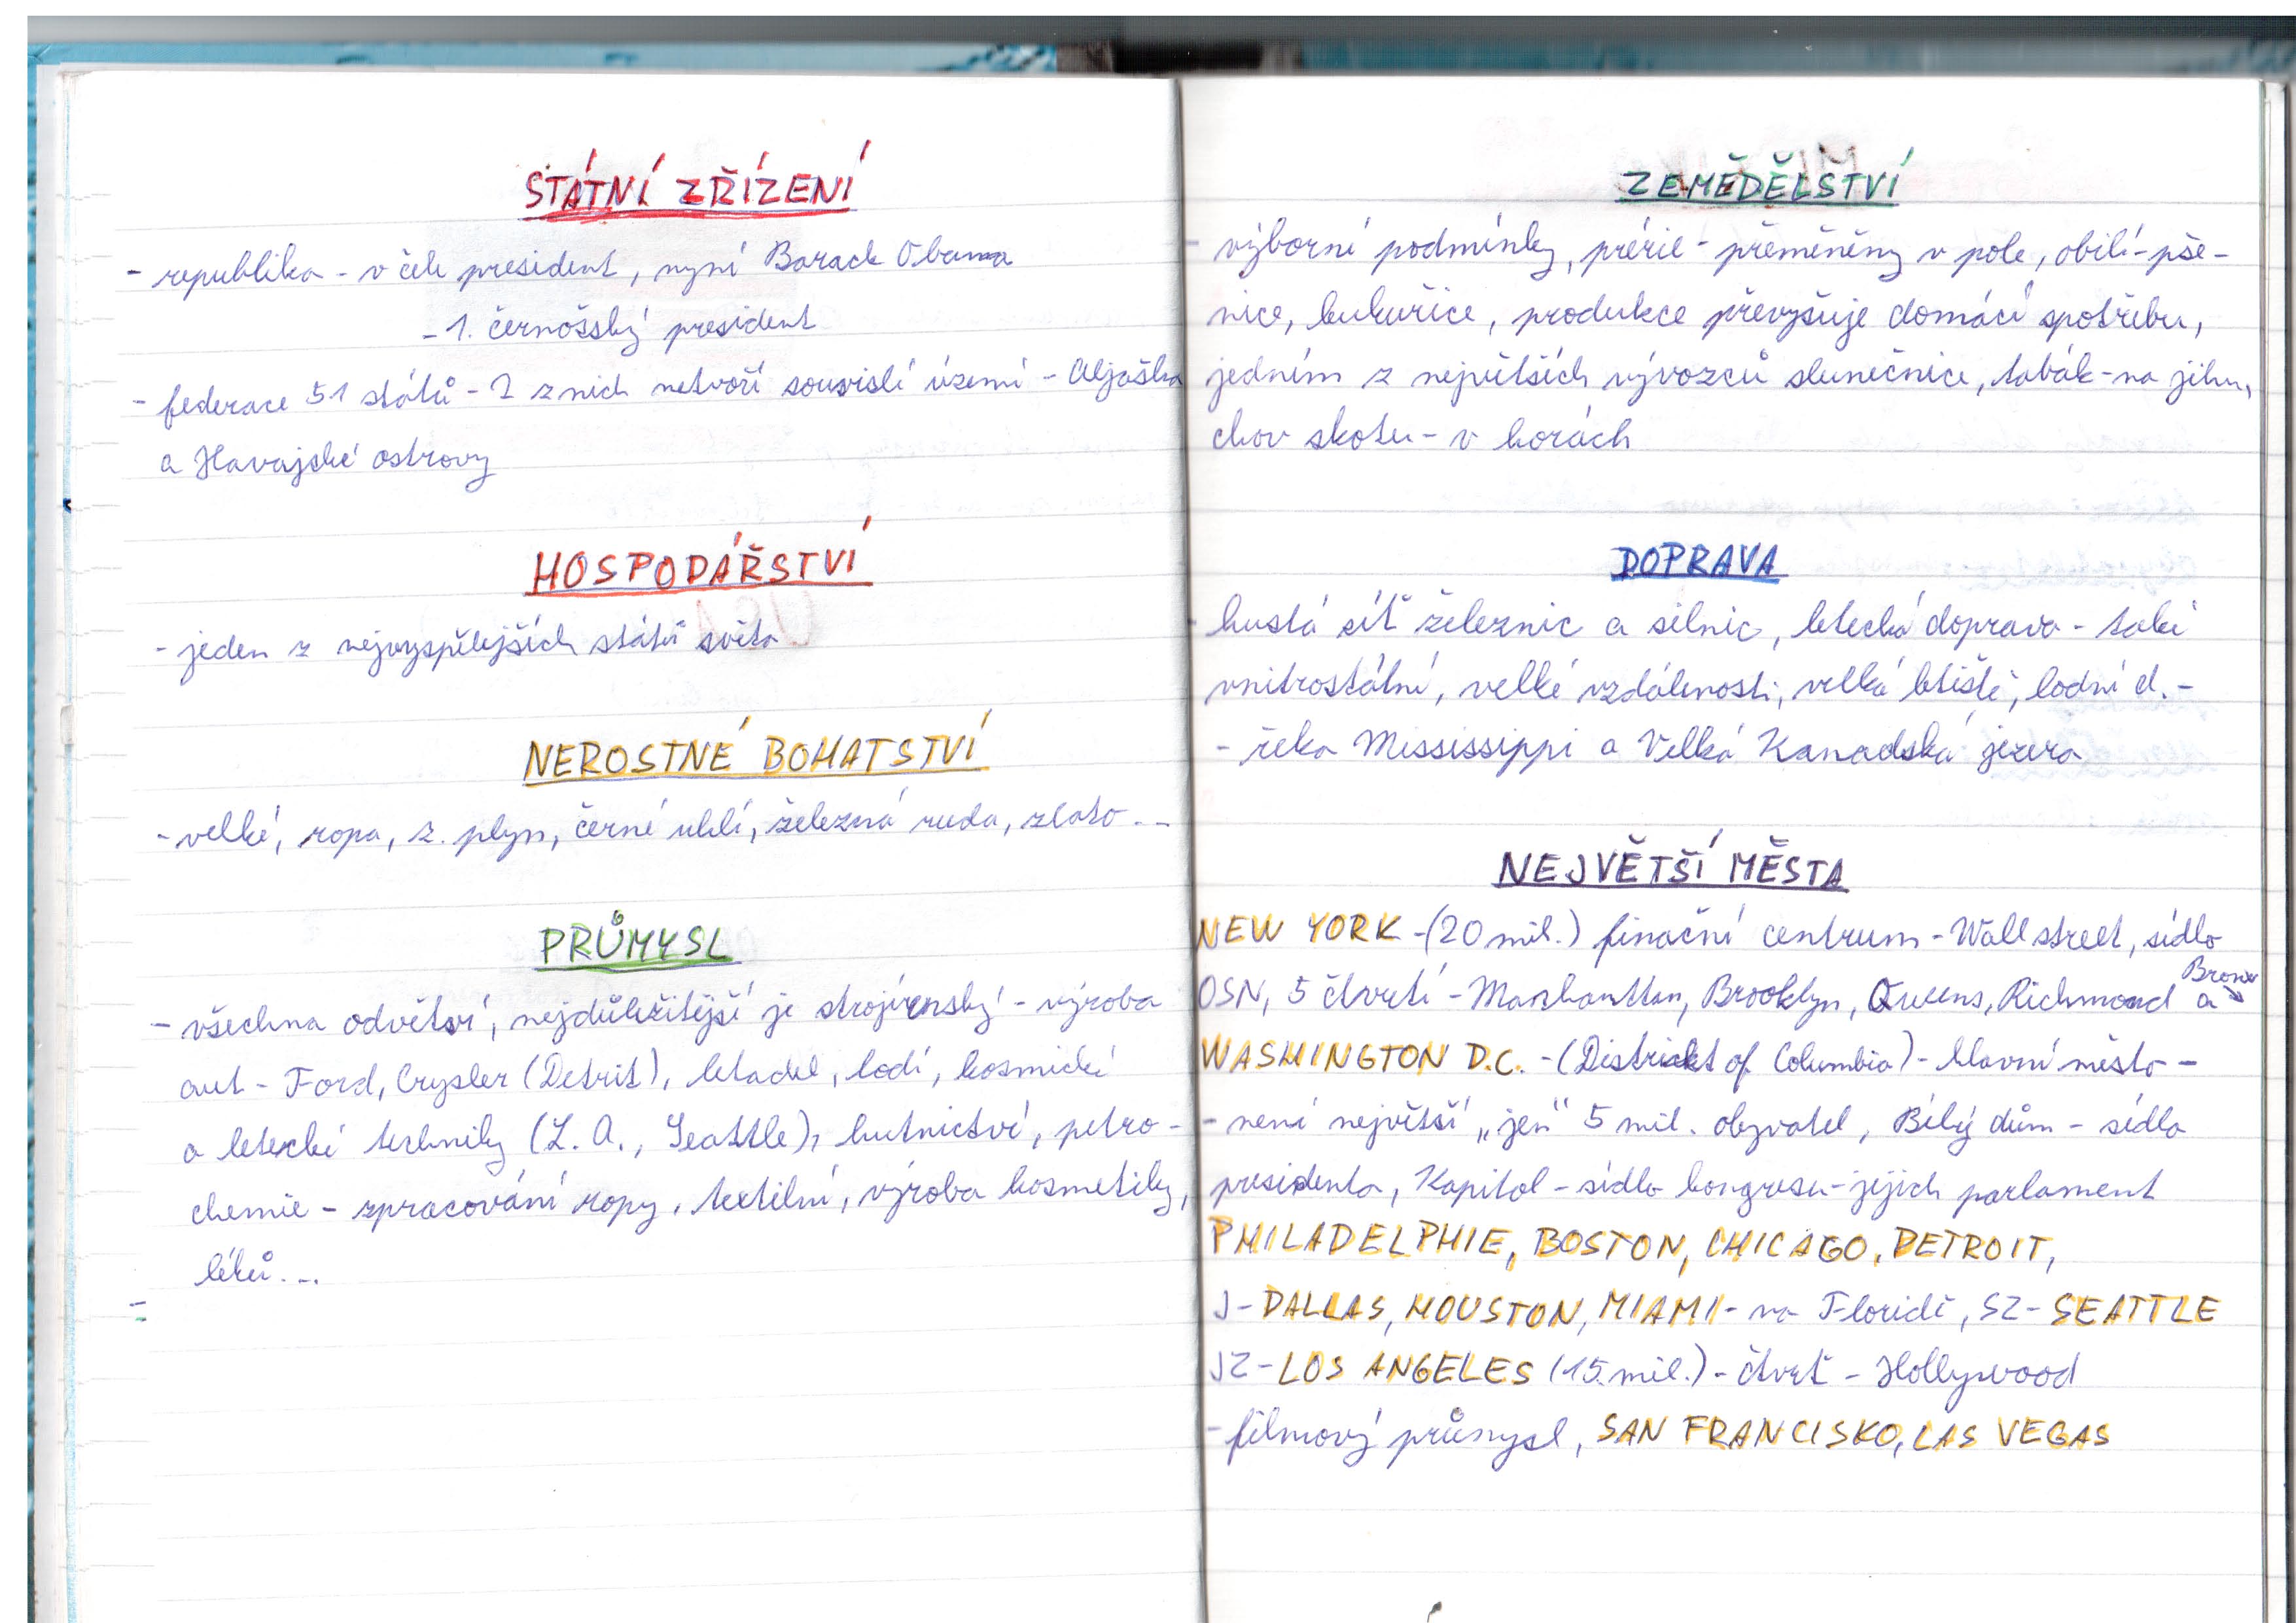 STÁTNÍ ZŘÍZENÍ
- republika - v čele president, nyní Barack Obama
- 1. černošský president
- federace 51 států - 2 z nich netvoří souvislé území - Aljaška
a Havajské ostrovy
HOSPODÁŘSTVÍ
- jeden z nejvyspělejších států světa
NEROSTNÉ BOHATSTVÍ
- velké, ropa, z. plyn, černé uhlí, železná ruda, zlato...
PRŮMYSL
- všechna odvětví, nejdůležitější je strojírenský - výroba
aut - Ford, Crysler (Detrit), letadel, lodí, kosmické
a letecké techniky (L. A., Seattle), hutnictví, petro-
chemie - zpracování ropy, textilní, výroba kosmetiky,
léků...
-
ZEMĚDĚLSTVÍ
- výborné podmínky, prérie - přeměněny v pole, obilí - pše-
nice, kukuřice, produkce převyšuje domácí spotřebu,
jedním z největších vývozců slunečnice, tabák - na jihu,
chov skotu - v horách
DOPRAVA
- hustá síť železnic a silnic, letecká doprava - také
vnitrostátní, velké vzdálenosti, velká letiště, lodní d. -
- řeka Mississippi a Velká Kanadská jezera
NEJVĚTŠÍ MĚSTA
NEW YORK - (20 mil.) finační centrum - Wall street, sídlo
OSN, 5 čtvrtí - Manhanttan, Brooklyn, Queens, Richmond a Bronx
WASHINGTON D.C. - (Distrikt of Columbia) - hlavní město -
- není největší „jen“ 5 mil. obyvatel, Bílý dům - sídlo
presidenta, Kapitol - sídlo kongresu - jejich parlament
PHILADELPHIE, BOSTON, CHICAGO, DETROIT,
J - DALLAS, HOUSTON, MIAMI - na Floridě, SZ - SEATTLE
JZ - LOS ANGELES (15 mil.) - čtvrť - Hollywood
- filmový průmysl, SAN FRANCISKO, LAS VEGAS